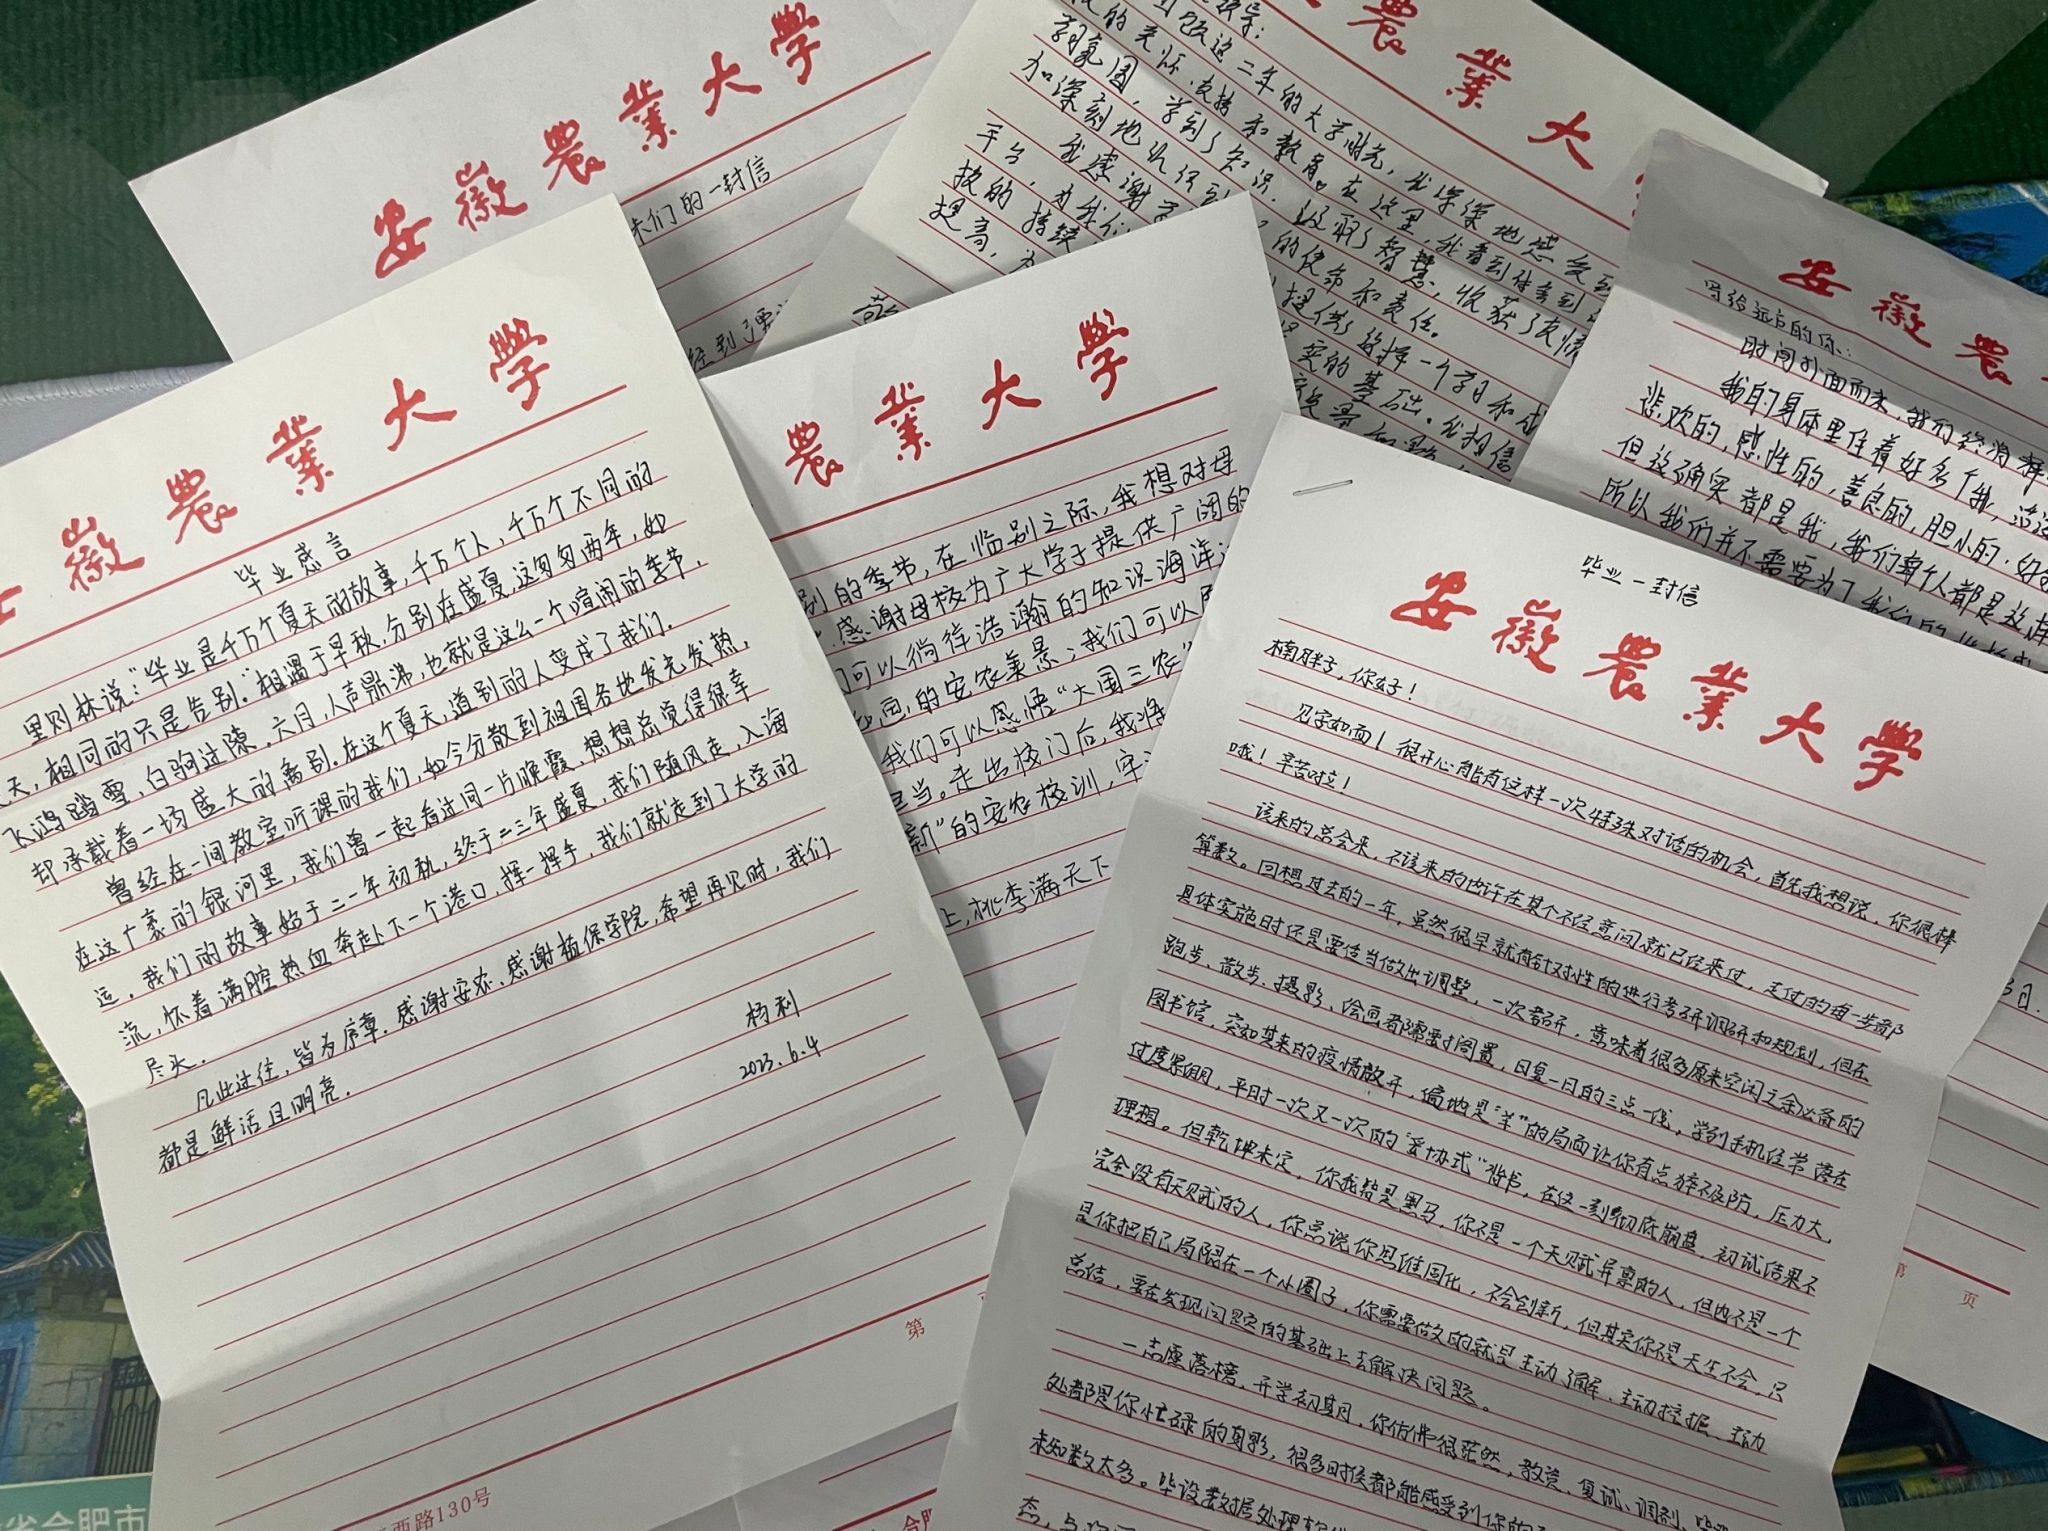 安徽農業大學
毕业感言
里则林说:"毕业是千万个夏天的故事,千万个人,千万个不同的
天,相同的只是告别."相遇于早秋,分别在盛夏,这匆匆两年,如
飞鸿踏雪,白驹过隙.六月,人声鼎沸,也就是这么一个喧闹的季节,
却承载着一场盛大的离别.在这个夏天,道别的人变成了我们.
曾经在一间教室听课的我们,如今分散到祖国各地发光发热,
在这广袤的银河里,我们曾一起看过同一片晚霞,想想总觉得很幸
运,我们的故事始于二一年初秋,终于二三年盛夏,我们随风走,入海
流,怀着满腔热血奔赴下一个港口,挥一挥手,我们就走到了大学的
尽头.
凡此过往,皆为序章.感谢安农,感谢植保学院,希望再见时,我们
都是鲜活且明亮.
杨利
2023.6.4
第
西路130号
省合肥市
安徽農業大學
们的一封信
農業大學
别的季节,在临别之际,我想对母
感谢母校为广大学子提供广阔的
可以徜徉浩瀚的知识海洋
的安农美景;我们可以
我们可以感悟"大国三农"
担当。走出校门后,我将
新"的安农校训,牢
上,桃李满天下
農業大
这二年的大学时光,我深深地感受到
的关怀、支持和教育。在这里,我看到
习氛围,学到了知识,汲取了智慧,收获了友情
加深刻地认识到 的使命和责任。
平台,为我们提供了这样一个学习和成
我感谢
坚实的基础。我相信
持续
提高,为
安徽農
写给远方的你:
时间扑面而来,我们终将释
我的身体里住着好多个我,
悲欢的,感性的,善良的,胆小的,
但这确实都是我,我们每个人都是这样
所以我们并不需要为了我们的
3日.
第 页
毕业一封信
安徽農業大學
楠胖子,你好!
见字如面!很开心能有这样一次特殊对话的机会,首先我想说,你很棒
哦!辛苦啦!
该来的总会来,不该来的也许在某个不经意间就已经来过,走过的每一步都
算数。回想过去的一年,虽然很早就有针对性的进行考研调研和规划,但在
具体实施时还是要适当做出调整,一次考研,意味着很多原来空闲之余必备的
跑步、散步、摄影、绘画都需要搁置,日复一日的三点一线,学到手机经常落在
图书馆,突如其来的疫情散开,遍地是"羊"的局面让你有点猝不及防,压力大,
过度紧绷,平时一次又一次的"妥协式"背书,在这一刻彻底崩盘,初试结果不
理想。但乾坤未定,你我皆是黑马,你不是一个天赋异禀的人,但也不是一个
完全没有天赋的人,你总说你思维固化,不会创新,但其实你不是天生不会,只
是你把自己局限在一个小圈子,你需要做的就是主动了解、主动挖掘、主动
总结,要在发现问题的基础上去解决问题。
一志愿落榜,开学初期,你仿佛很茫然,教资、复试、调剂、
处都是你忙碌的身影,很多时候都能感受到你的
未知数太多。毕设数据处理
态,与